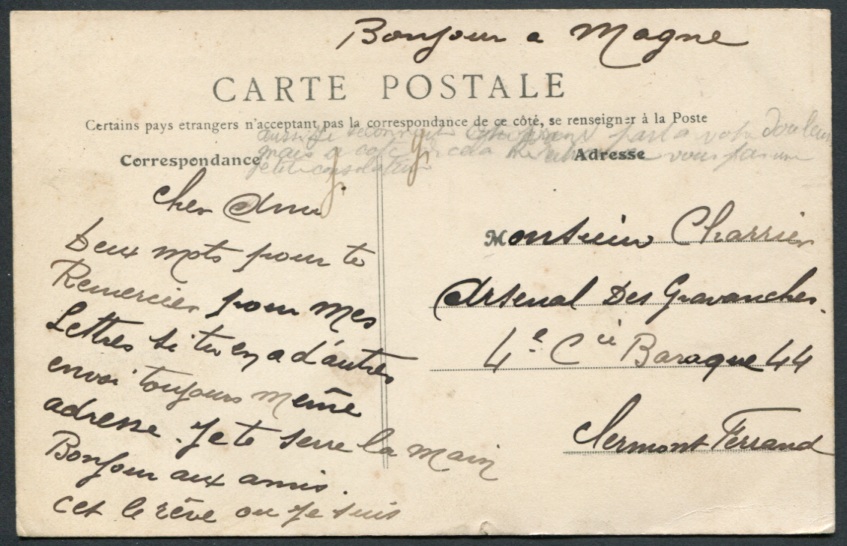 Bonjour a Magne
CARTE POSTALE
Certains pays etrangers n'acceptant pas la correspondance de ce côté, se renseigner à la Poste
part a votre douleur
mais a cote cela vous fasse une
petite consolation
Correspondance
Adresse
Cher Ami
Deux mots pour te
Remercier pour mes
Lettres si tu en a d'autres
envoi toujours meme
adresse. Je te serre la main
Bonjour aux amis.
cet le rêve ou je suis
Monsieur Charrier
Arsenal Des Gravanches.
4e Cie Baraque 44
Clermont Ferrand